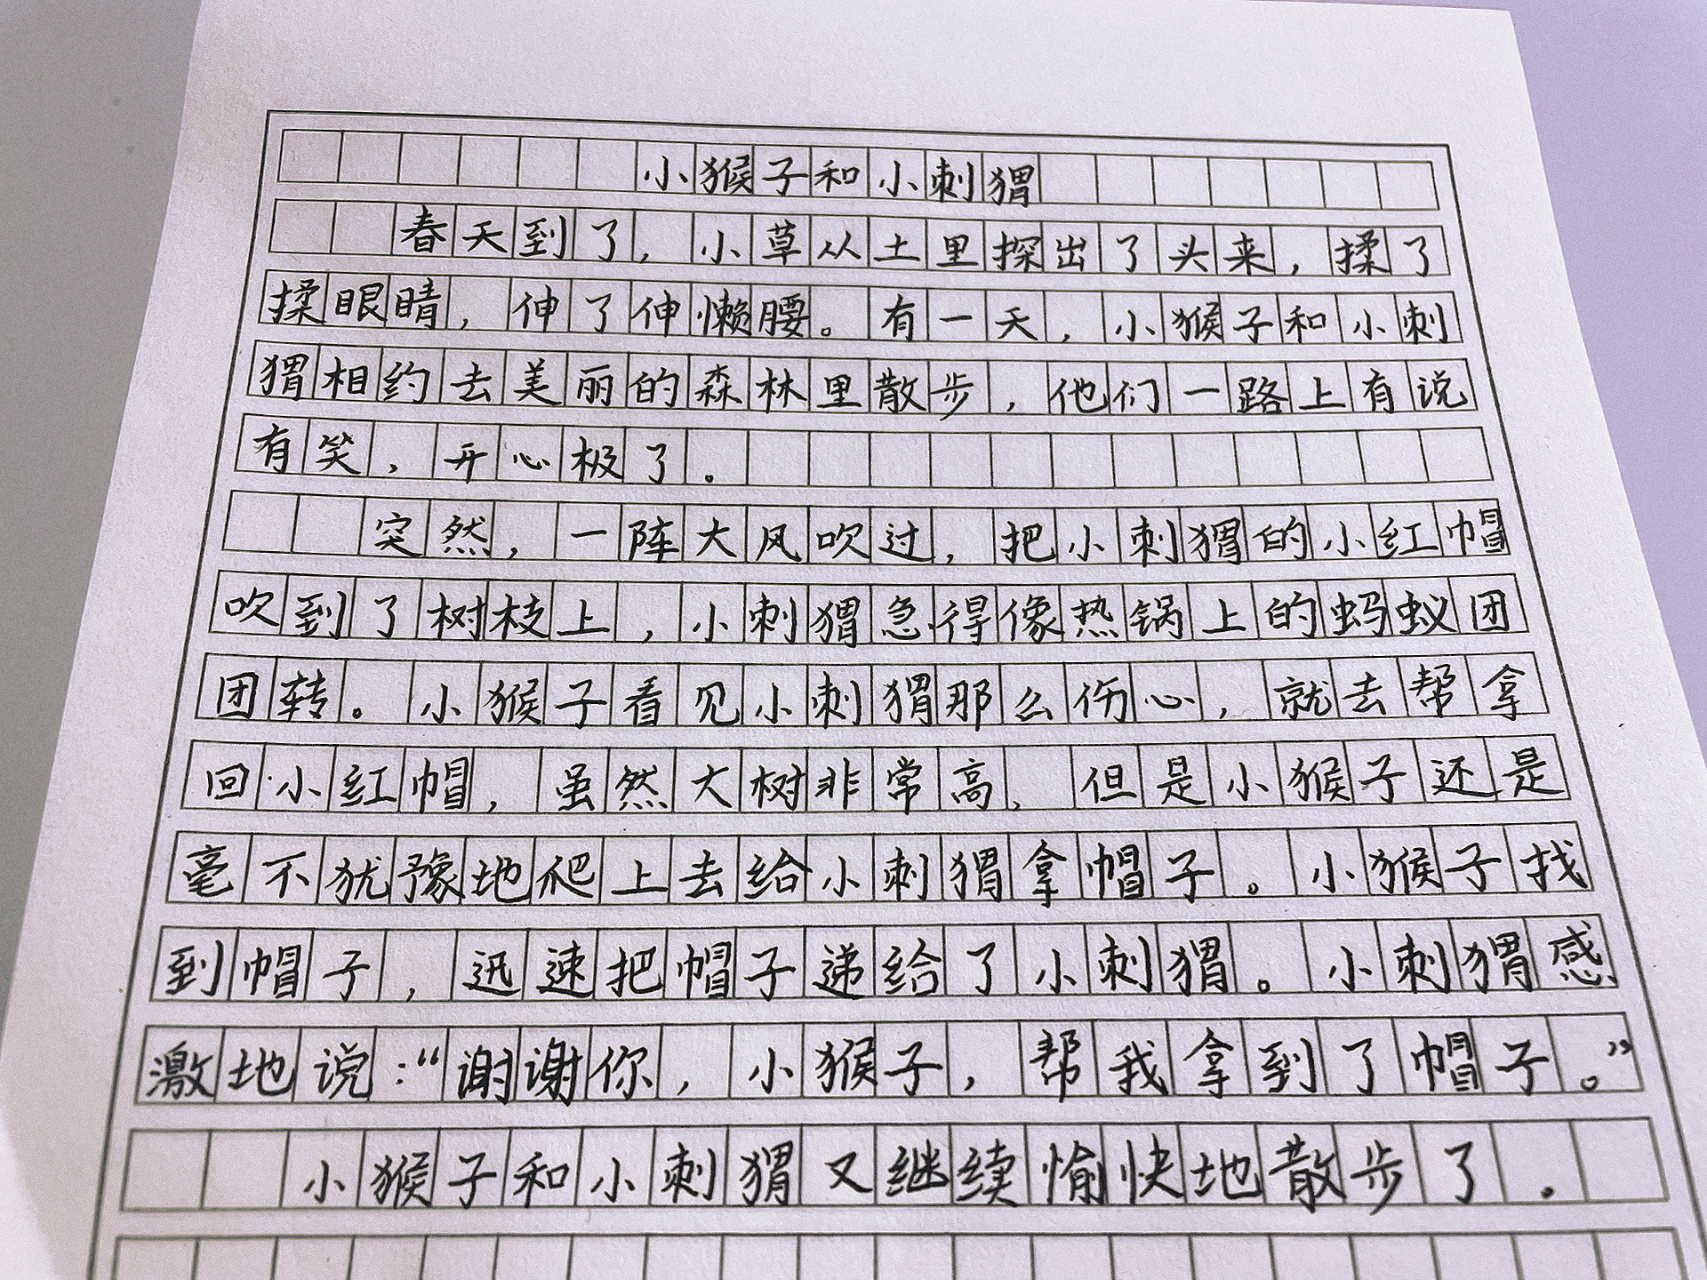 小猴子和小刺猬
春天到了，小草从土里探出了头来，揉了
揉眼睛，伸了伸懒腰。有一天，小猴子和小刺
猬相约去美丽的森林里散步，他们一路上有说
有笑，开心极了。
突然，一阵大风吹过，把小刺猬的小红帽
吹到了树枝上，小刺猬急得像热锅上的蚂蚁团
团转。小猴子看见小刺猬那么伤心，就去帮拿
回小红帽，虽然大树非常高，但是小猴子还是
毫不犹豫地爬上去给小刺猬拿帽子。小猴子找
到帽子，迅速把帽子递给了小刺猬。小刺猬感
激地说：“谢谢你，小猴子，帮我拿到了帽子。”
小猴子和小刺猬又继续愉快地散步了。